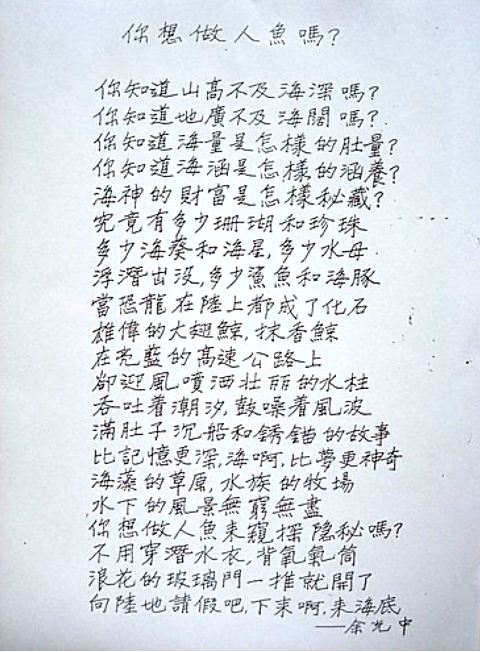 你想做人魚嗎？
你知道山高不及海深嗎？
你知道地廣不及海闊嗎？
你知道海量是怎樣的肚量？
你知道海涵是怎樣的涵養？
海神的財富是怎樣秘藏？
究竟有多少珊瑚和珍珠
多少海葵和海星，多少水母
浮潛出沒，多少鯊魚和海豚
當恐龍在陸上都成了化石
雄偉的大翅鯨，抹香鯨
在亮藍的高速公路上
卻迎風噴洒壯丽的水柱
吞吐着潮汐，鼓噪着風波
滿肚子沉船和銹錨的故事
比記憶更深，海啊，比夢更神奇
海藻的草原，水族的牧場
水下的風景無窮無盡
你想做人魚來窺探隐秘嗎？
不用穿潛水衣，背氧氣筒
浪花的玻璃門一推就開了
向陸地請假吧，下來啊，來海底
——余光中